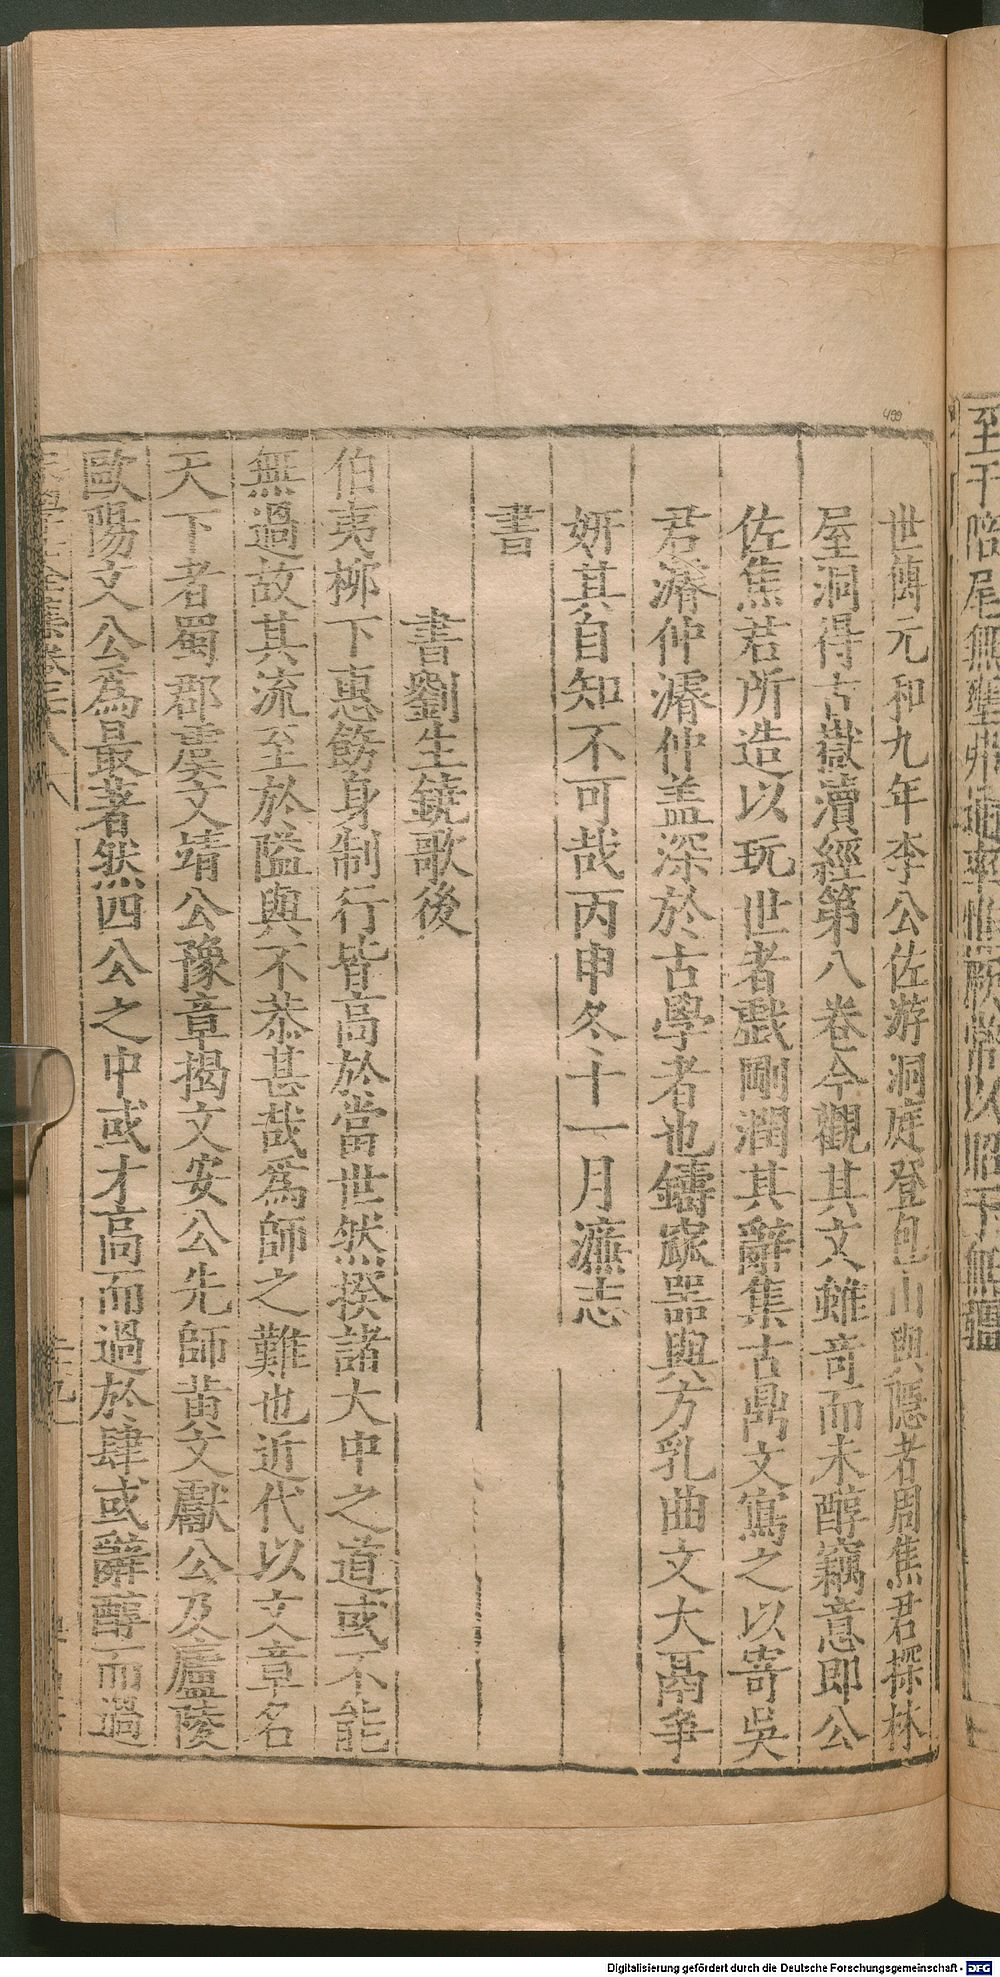 至于陪尾無
世傳元和九年李公佐游洞庭登包山與隱者周焦君探林
屋洞得古嶽瀆經第八卷今觀其文雖奇而未醇竊意即公
佐焦君所造以玩世者戲剛潤其辭集古鼎文寫之以寄吳
君濬仲濬仲盖深於古學者也鑄寂器與方乳曲文大鬲爭
妍其自知不可哉丙申冬十一月濂志
書
書劉生鐃歌後
伯夷柳下惠飭身制行皆高於當世然揆諸大中之道或不能
無過故其流至於隘與不恭甚哉為師之難也近代以文章名
天下者蜀郡虞文靖公豫章揭文安公先師黄文獻公及廬陵
歐陽文公為最著然四公之中或才高而過於肆或辭醇而過
499
Digitalisierung gefördert durch die Deutsche Forschungsgemeinschaft - DFG